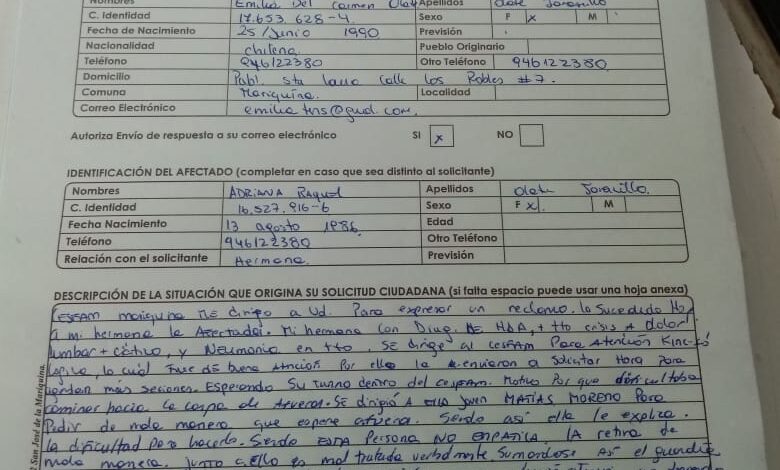 Nombres Emilia Del Carmen Olate Apellidos Olate Jaramillo
C. Identidad 17.653.628-4 Sexo F x M
Fecha de Nacimiento 25/Junio 1990 Previsión
Nacionalidad chilena Pueblo Originario
Teléfono 946122380 Otro Teléfono 946122380
Domicilio Pobl. sta laura calle los Robles #7.
Comuna Mariquina. Localidad
Correo Electrónico
Autoriza Envío de respuesta a su correo electrónico SI x NO
IDENTIFICACIÓN DEL AFECTADO (completar en caso que sea distinto al solicitante)
Nombres ADRIANA Raquel Apellidos Olate Jaramillo.
C. Identidad 16.527.916-6 Sexo F x M
Fecha Nacimiento 13 agosto 1986 Edad
Teléfono 946122380 Otro Teléfono
Relación con el solicitante Hermana. Previsión
DESCRIPCIÓN DE LA SITUACIÓN QUE ORIGINA SU SOLICITUD CIUDADANA (si falta espacio puede usar una hoja anexa)
CESFAM mariquina ME dirijo a Ud. Para expresar un reclamo. lo Sucedido
a mi hermana la Afectada. Mi hermana con Diag. DE HDA, + tto crisis dolor
lumbar + ciático, y Neumonia en tto. SE dirige al CESFAM Para Atención Kinesio
logica, la cuál fue dE buena Atención Por ello la envieron a Solicitar Hora para
más seciones. Esperando Su turno dentro del cesfam. Motivo Por que dificultaba
caminar hacia la carpa de Afueras. SE dirigió A ella Joven MATIAS MORENO Para
Pedir de mala manera que espere afuera. Siendo así ella le explica.
la dificultad para hacerlo. Siendo ESTA Persona NO EMPATICA. LA retira de
mala manera. junto a ello es mal tratada verbalmente Sumandose Así el guardia
2 San José de la Mariquina.